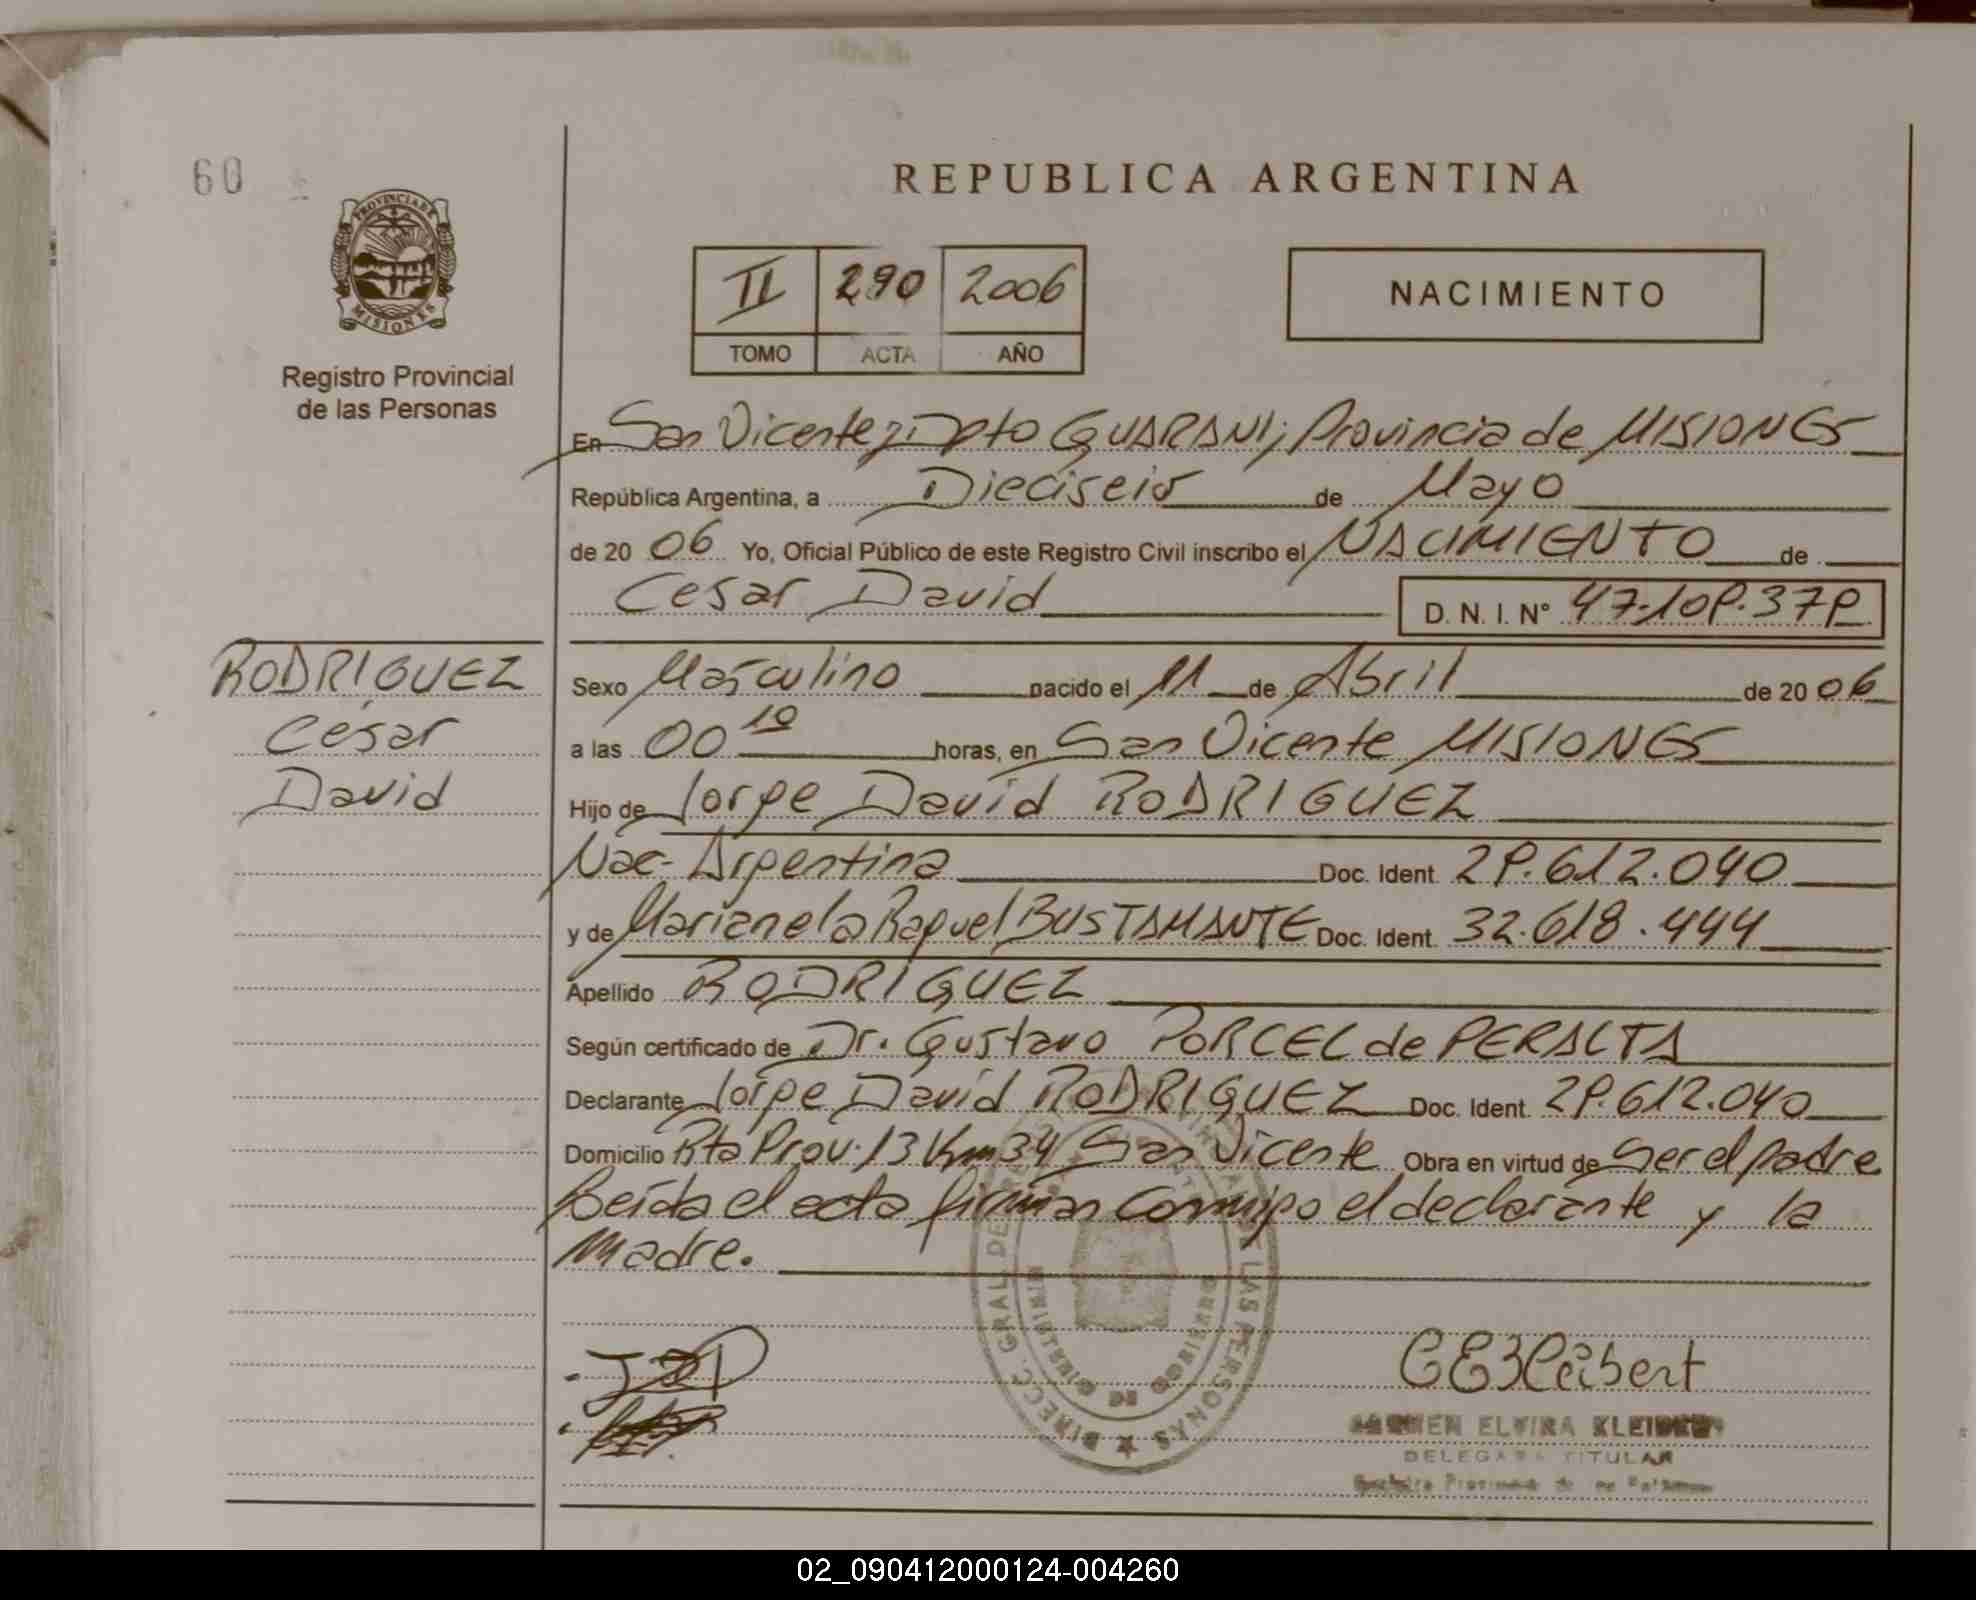 60
PROVINCIA DE
MISIONES
Registro Provincial
de las Personas
REPUBLICA ARGENTINA
II 290 2006
TOMO ACTA AÑO
NACIMIENTO
En San Vicente, Dpto GUARANI; Provincia de MISIONES
República Argentina, a Dieciseis de Mayo
de 2006 Yo, Oficial Público de este Registro Civil inscribo el NACIMIENTO de
Cesar David
D. N. I. N° 47.109.379
RODRIGUEZ
César
David
Sexo Masculino nacido el 11 de Abril de 2006
a las 00 10 horas, en San Vicente MISIONES
Hijo de Jorge David RODRIGUEZ
Nac. Argentina Doc. Ident. 29.612.040
y de Marianela Raquel BUSTAMANTE Doc. Ident. 32.618.444
Apellido RODRIGUEZ
Según certificado de Dr. Gustavo PORCEL de PERALTA
Declarante Jorge David RODRIGUEZ Doc. Ident. 29.612.040
Domicilio Rta Prov. 13 Km 34 San Vicente Obra en virtud de Ser el padre
Leída el acta firman conmigo el declarante y la
Madre.
DIRECC. GRAL. DE LAS PERSONAS
ELVIRA
DELEGADA TITULAR
02_090412000124-004260